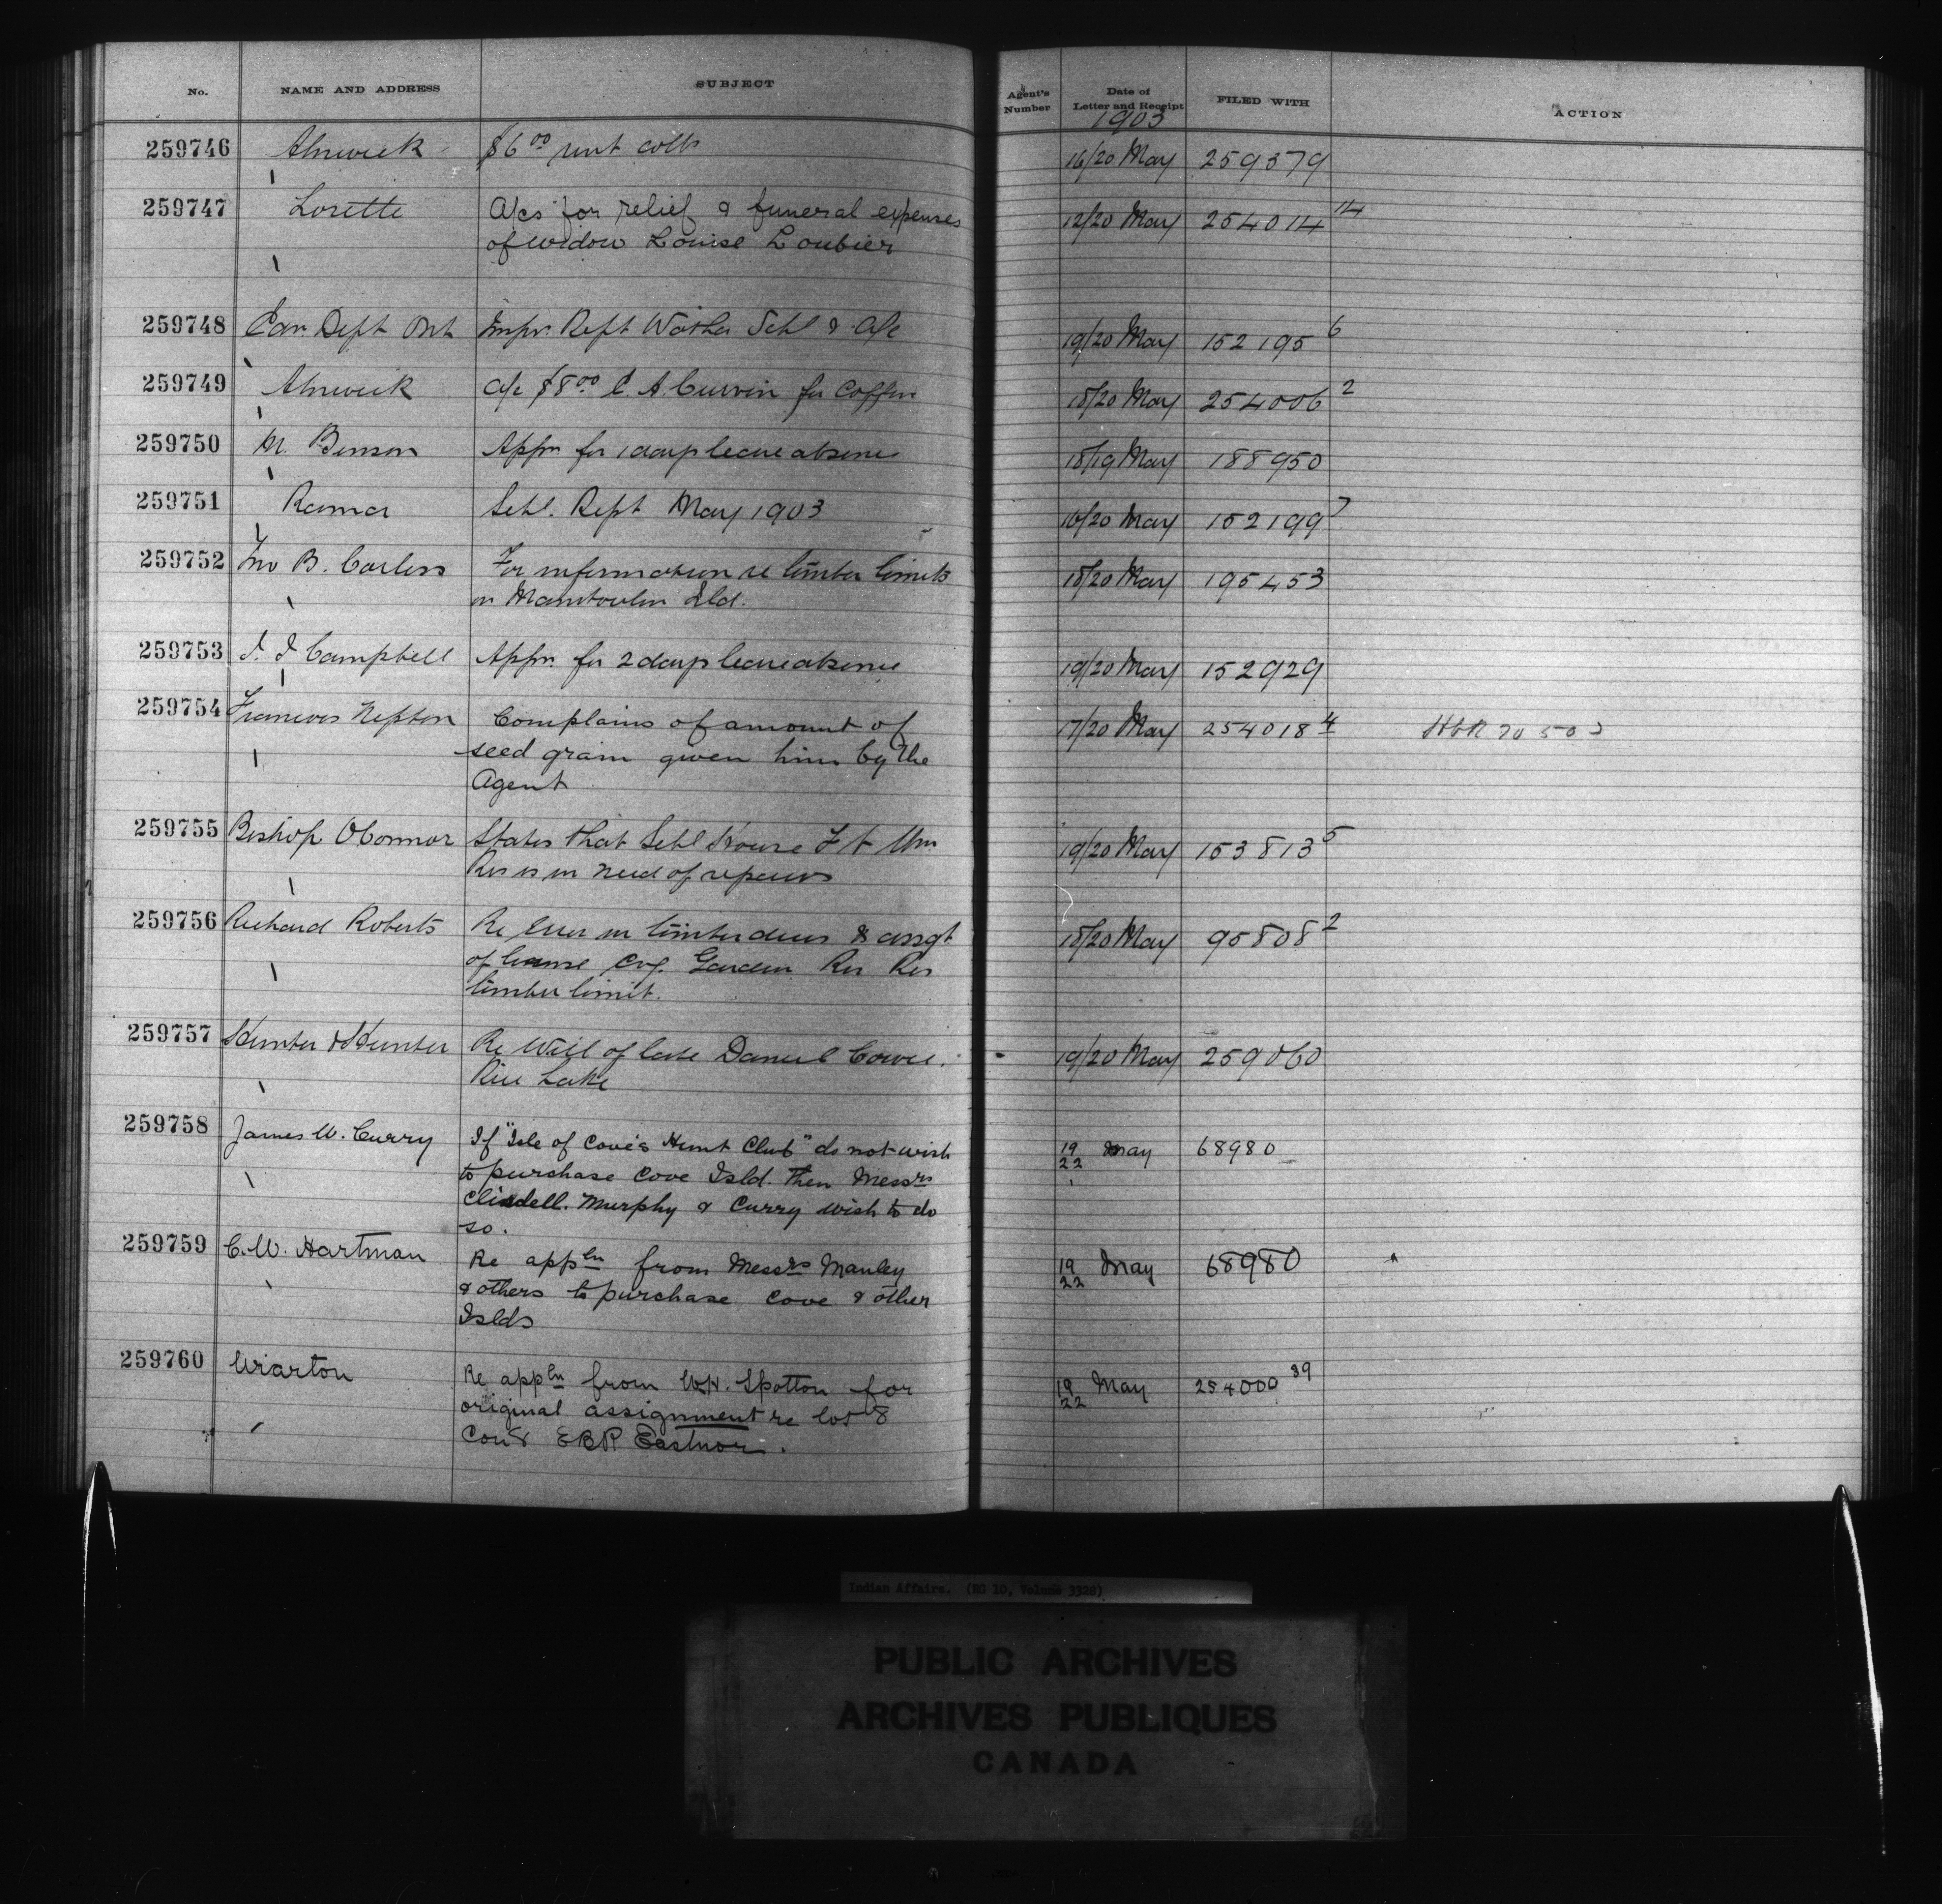 No. NAME AND ADDRESS SUBJECT Agent's Number Date of Letter and Receipt FILED WITH ACTION
1903
259746 Alnwick $6.00 rent colln 16/20 May 259379
259747 Lorette A/cs for relief & funeral expenses 12/20 May 254014 14
of widow Louise Loubier
259748 Dept Ont Rept Schl & A/c 19/20 May 152195 6
259749 Alnwick A/c $8.00 C. A. for Coffin 18/20 May 254006 2
259750 M. Benson Appn for 1 days leave absence 18/19 May 188950
259751 Rama Schl. Rept May 1903 16/20 May 152199 7
259752 Jno B. Carless For information re timber limits 18/20 May 195453
on Manitoulin Isld.
259753 Campbell Appn. for 2 days leave absence 19/20 May 152929
259754 Francois Nepton Complains of amount of 17/20 May 254018 4
seed grain given him by the
Agent
259755 Bishop OConnor States that Schl House Ft Wm 19/20 May 153813 5
Res is in need of repairs
259756 Richard Roberts Re Error in timber dues & assgt 18/20 May 95808 2
of license Garden Riv Res
timber limit.
259757 Hunter & Hunter Re Will of late Daniel Cowe. 19/20 May 259060
Rice Lake
259758 James W. Curry If "Isle of Coves Hunt Club" do not wish 19/22 May 68980
to purchase Cove Isld. then Messrs
Murphy & Curry wish to do
so.
259759 C. W. Hartman Re appln from Messrs Manley 19/22 May 68980
& others to purchase Cove & other
Islds
259760 Wiarton Re appln from W.H. Spotton for 19/22 May 254000 39
original assignment re lot 8
Con 8 EBR Eastnor.
Indian Affairs. (RG 10, Volume 3328)
PUBLIC ARCHIVES
ARCHIVES PUBLIQUES
CANADA